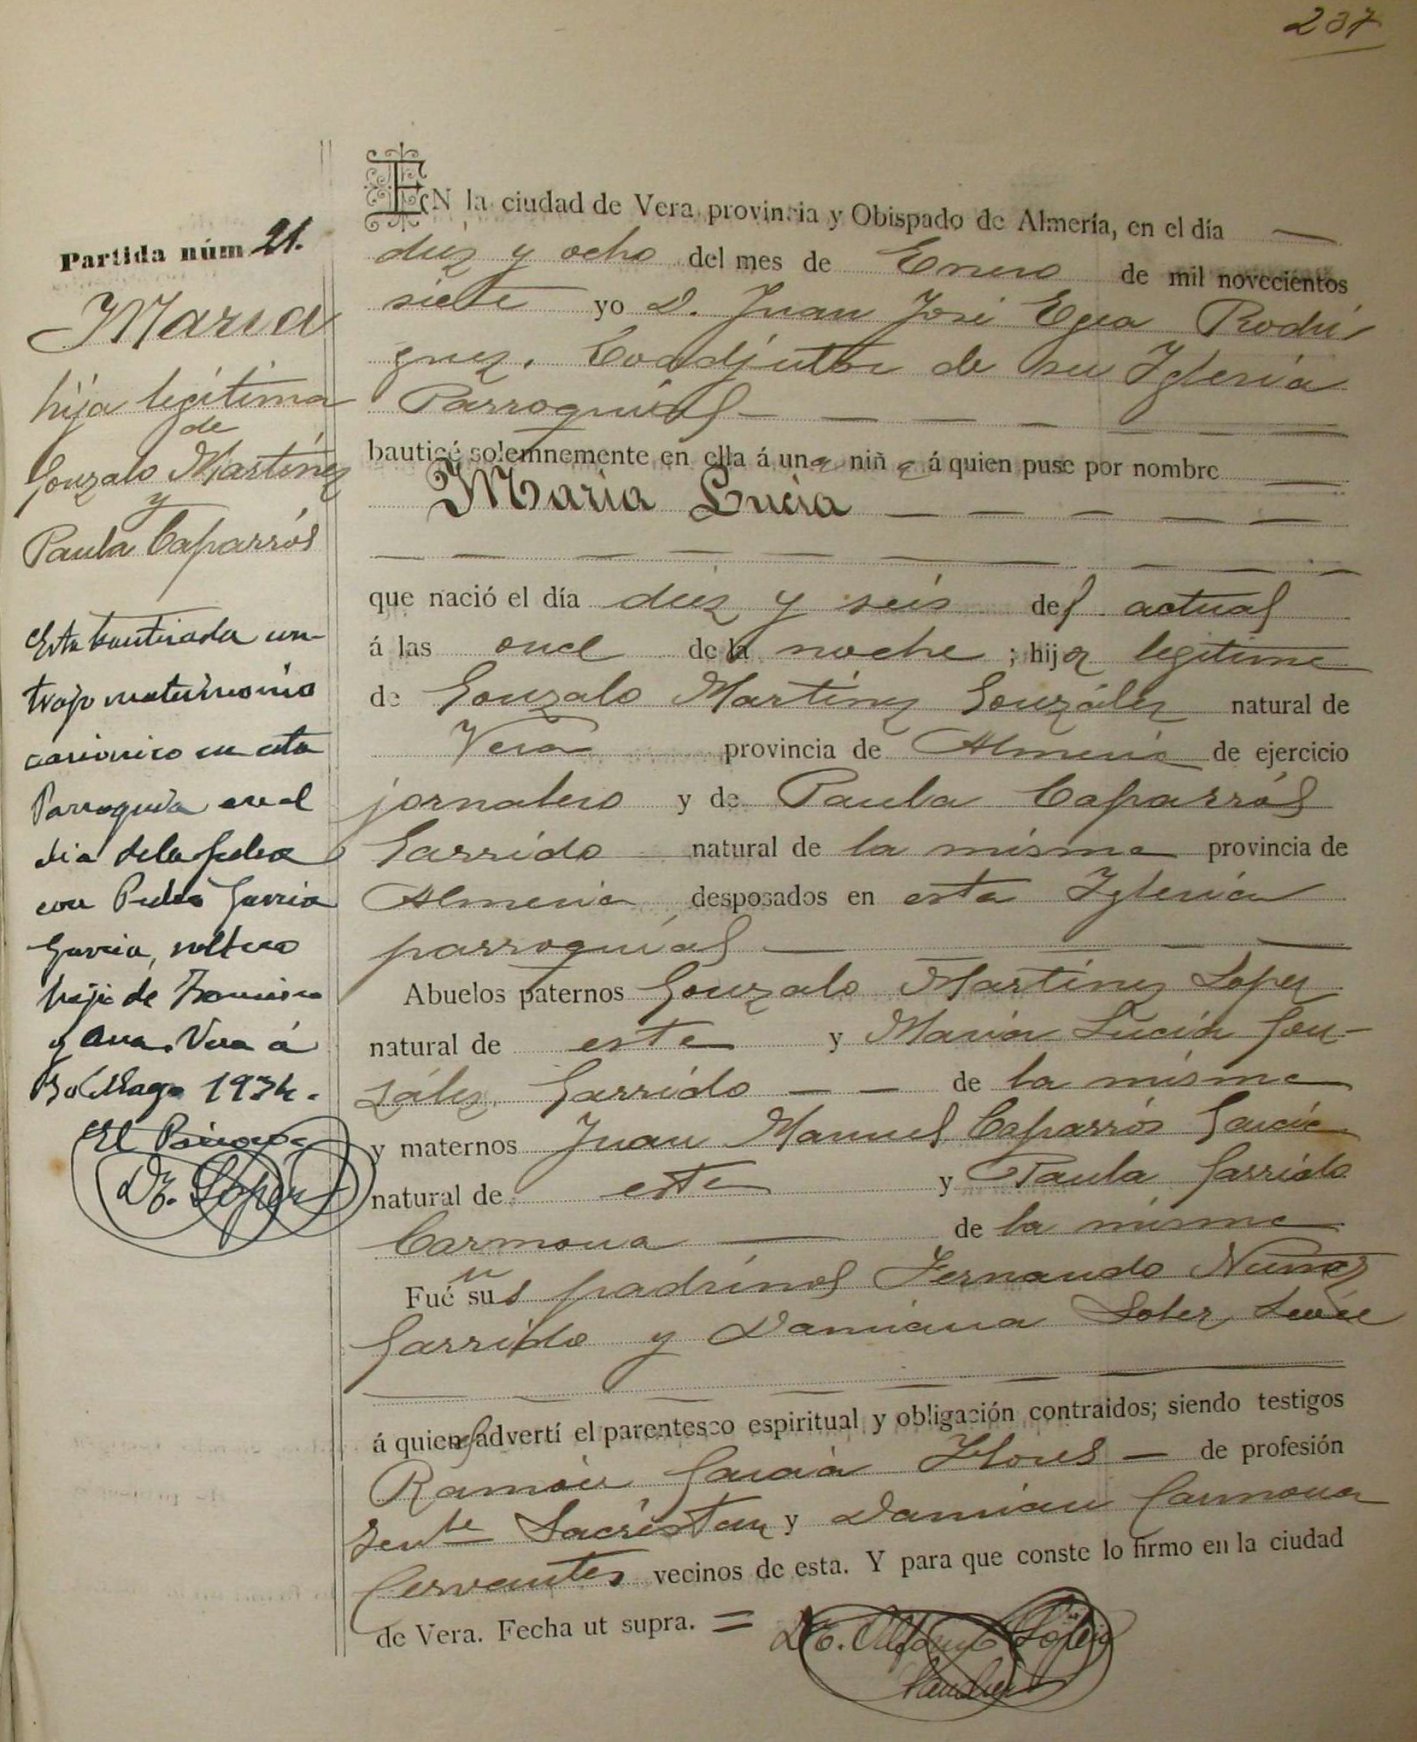 237
Partida núm 21.
Maria
hija legitima
de
Gonzalo Martínez
y
Paula Caparrós
Esta bautizada con-
trajo matrimonio
canonico en esta
Parroquia en el
dia de la fecha
con Pedro Garcia
Garcia, soltero
hijo de Francisco
y Ana. Vera á
de Mayo 1934.
El Párroco
López
EN la ciudad de Vera, provincia y Obispado de Almería, en el día
diez y ocho del mes de Enero de mil novecientos
siete yo D. Juan José Egea Rodrí
guez. Coadjutor de su Iglesia
Parroquial
bauticé solemnemente en ella á una niña á quien puse por nombre
Maria Lucia
que nació el día diez y seis del actual
á las once de la noche; hija legitima
de Gonzalo Martínez González natural de
Vera provincia de Almeria de ejercicio
jornalero y de Paula Caparrós
Garrido natural de la misma provincia de
Almeria desposados en esta Iglesia
parroquial
Abuelos paternos Gonzalo Martínez Lopez
natural de esta y Maria Lucia Gon-
zález Garrido de la misma
y maternos Juan Manuel Caparrós García
natural de esta y Paula Garrido
Carmona de la misma
Fué sus padrinos Fernando Nuñez
Garrido y Damiana Soler
á quienes advertí el parentesco espiritual y obligación contraidos; siendo testigos
Ramón Garcia Flores de profesión
Sacristan y Damián Carmona
Cervantes vecinos de esta. Y para que conste lo firmo en la ciudad
de Vera. Fecha ut supra. =